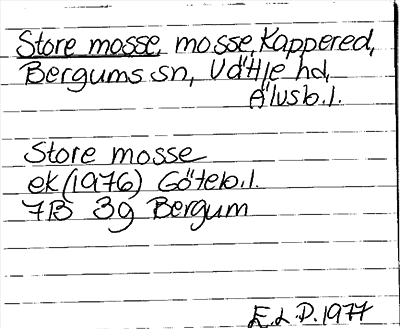 Store mosse, mosse, Kappered,
Bergums sn, Vättle hd,
Älvsb.l.
Store mosse
ek (1976) Göteb.l.
7B 3g Bergum
E.L.D. 1977